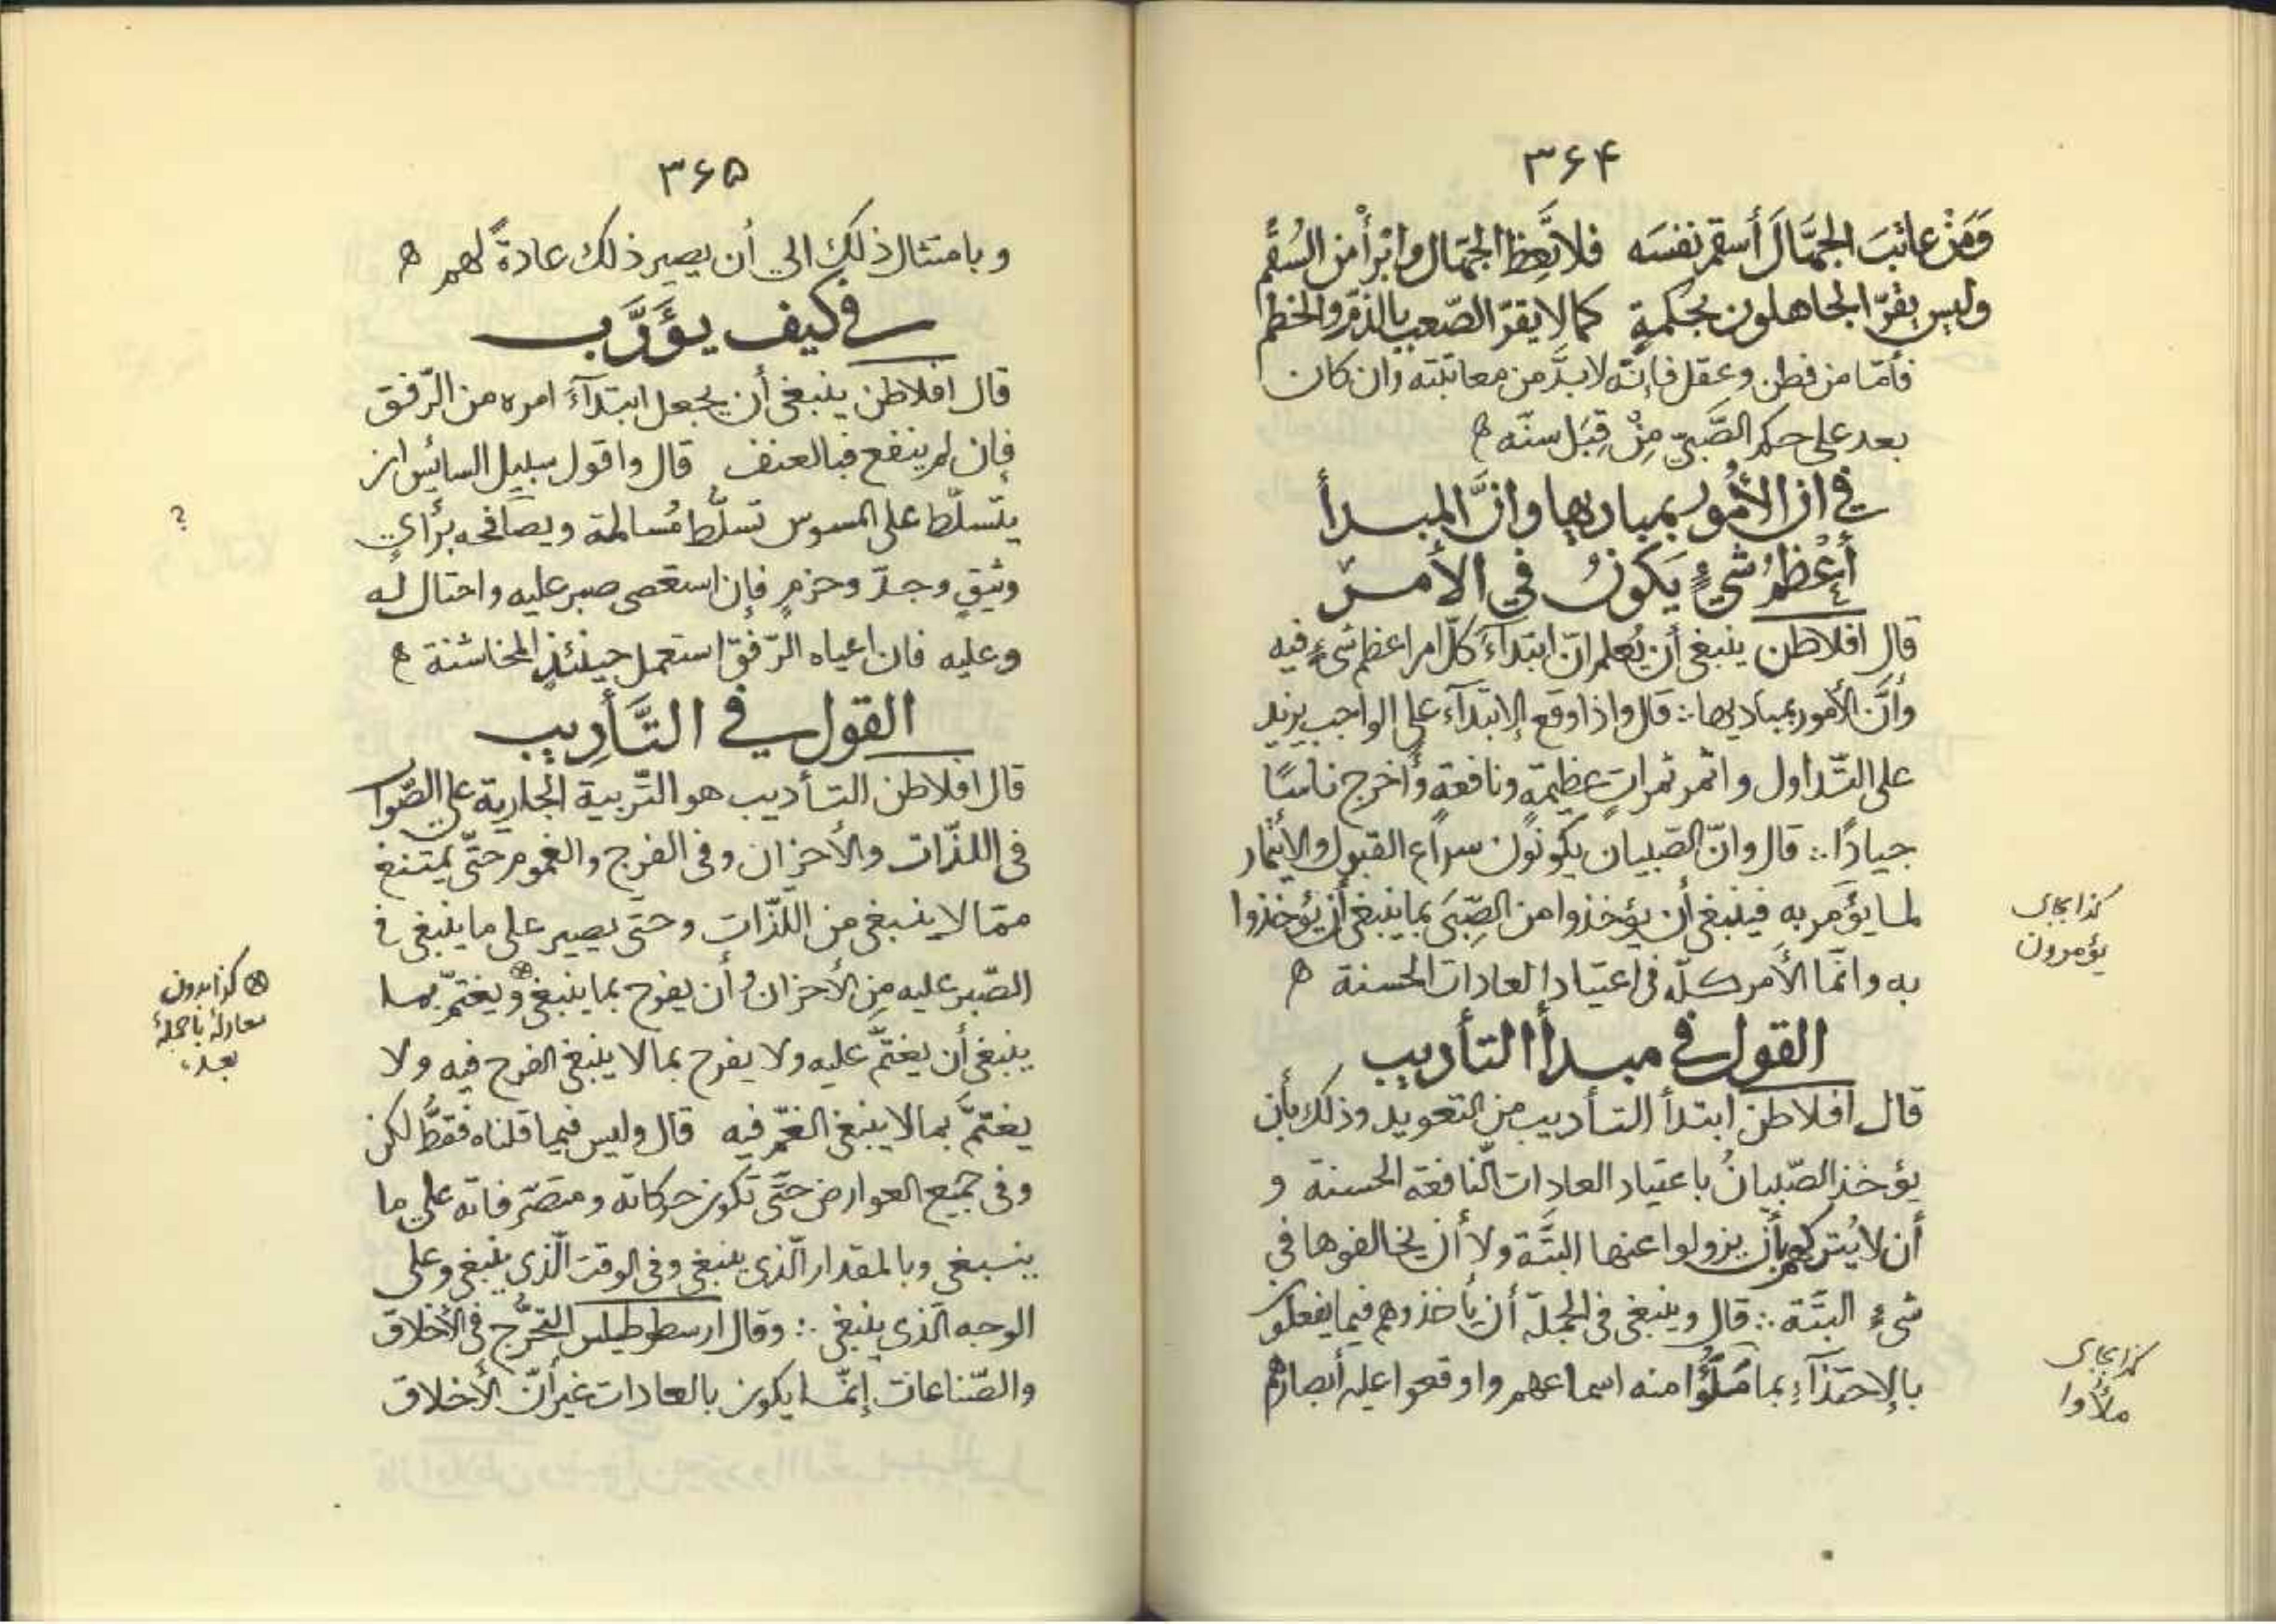 ۳۶۴
وَمَنْ عاتَبَ الجهَّالَ أسقم نفسَه فلا تَعِظ الجهّال وابْرأ من السُقم
وليس يقرّ الجاهلون بحكمةٍ كما لا يقرّ الصّعب بالذمّ والخطم
فأمّا من فطن وعقل فإنّه لا بدَّ من معاتبته وان كان
بعد على حكم الصَّبيّ مِنْ قِبَل سنّه ه
في ان الأمُور بمباديها وانَّ المبدأ
أعْظمُ شيءٍ يَكونُ في الأمرِ
قال افلاطن ينبغى أن يُعلم انّ ابتدآءَ كلّ امر اعظم شىءٍ فيه
وأنَّ الأمور بمباديها ∴ قال واذا وقع الإبتدآء على الواجب يزيد
على التّداول واثمر ثمراتٍ عظيمةٍ ونافعةٍ وأخرج ناسًا
جيادًا ∴ قال وانّ الصّبيان يكونون سراع القبول والإئتمار
لما يؤمر به فينبغى أن يؤخذوا من الصِّبَى بما ينبغى أن يؤخذوا
كذا بجاى
يؤمرون
به وانّما الأمر كلّه فى اعتياد العادات الحسنة ه
القول في مبدأ التأديب
قال افلاطن ابتدأ التأديب من التعويد وذلك بأن
يؤخذ الصّبيانُ باعتياد العادات النّافعة الحسنة و
أن لا يُتركهم بأن يزولوا عنها البتَّة ولا أن يخالفوها في
شىءٍ البتَّة ∴ قال وينبغى فى الجملة أن يأخذوهم فيما يفعلون
بالإحتذآءِ بما مَلَؤُا منه اسماعهم واوقعوا عليه أبصارهم
كذا بجاى
ملأوا
۳۶۵
وبامتثال ذلك الى أن يصير ذلك عادةً لهم ه
في كيف يؤَدَّب
قال افلاطن ينبغى أن يجعل ابتدآءَ امره من الرّفق
فإن لم ينفع فبالعنف قال واقول سبيل السائس ان
يتسلّط على المسوس تسلُّط مُسالمة ويصافحه برأيٍ
؟
وثيقٍ وجدّ وحزمٍ فإن استعصى صبر عليه واحتال له
وعليه فان اعياه الرّفق استعمل حينئذٍ المخاشنة ه
القول في التَّأدِيب
قال افلاطن التأديب هو التّربية الجارية على الصّواب
فى اللذّات والأحزان وفى الفرح والغموم حتّى يمتنع
ممّا لا ينبغى من اللّذّات وحتّى يصير على ما ينبغى فى
الصّبر عليه مِن الأحزان وأن يفرح بما ينبغى⊗ ويغتمّ بما
⊗ كذا بدون
معادلة با جملهٔ
بعد،
ينبغى أن يغتمّ عليه ولا يفرح بما لا ينبغى الفرح فيه ولا
يغتمَّ بما لا ينبغى الغمّ فيه قال وليس فيما قلناه فقطُّ لكن
وفى جميع العوارض حتَّى تكون حركاته ومتصرّفاته على ما
ينبغى وبالمقدار الّذى ينبغى وفى الوقت الّذى ينبغى وعلى
الوجه الّذى ينبغى ∴ وقال ارسطوطيلس التخرُّج فى الأخلاق
والصّناعات إنّما يكون بالعادات غير أنّ الأخلاق